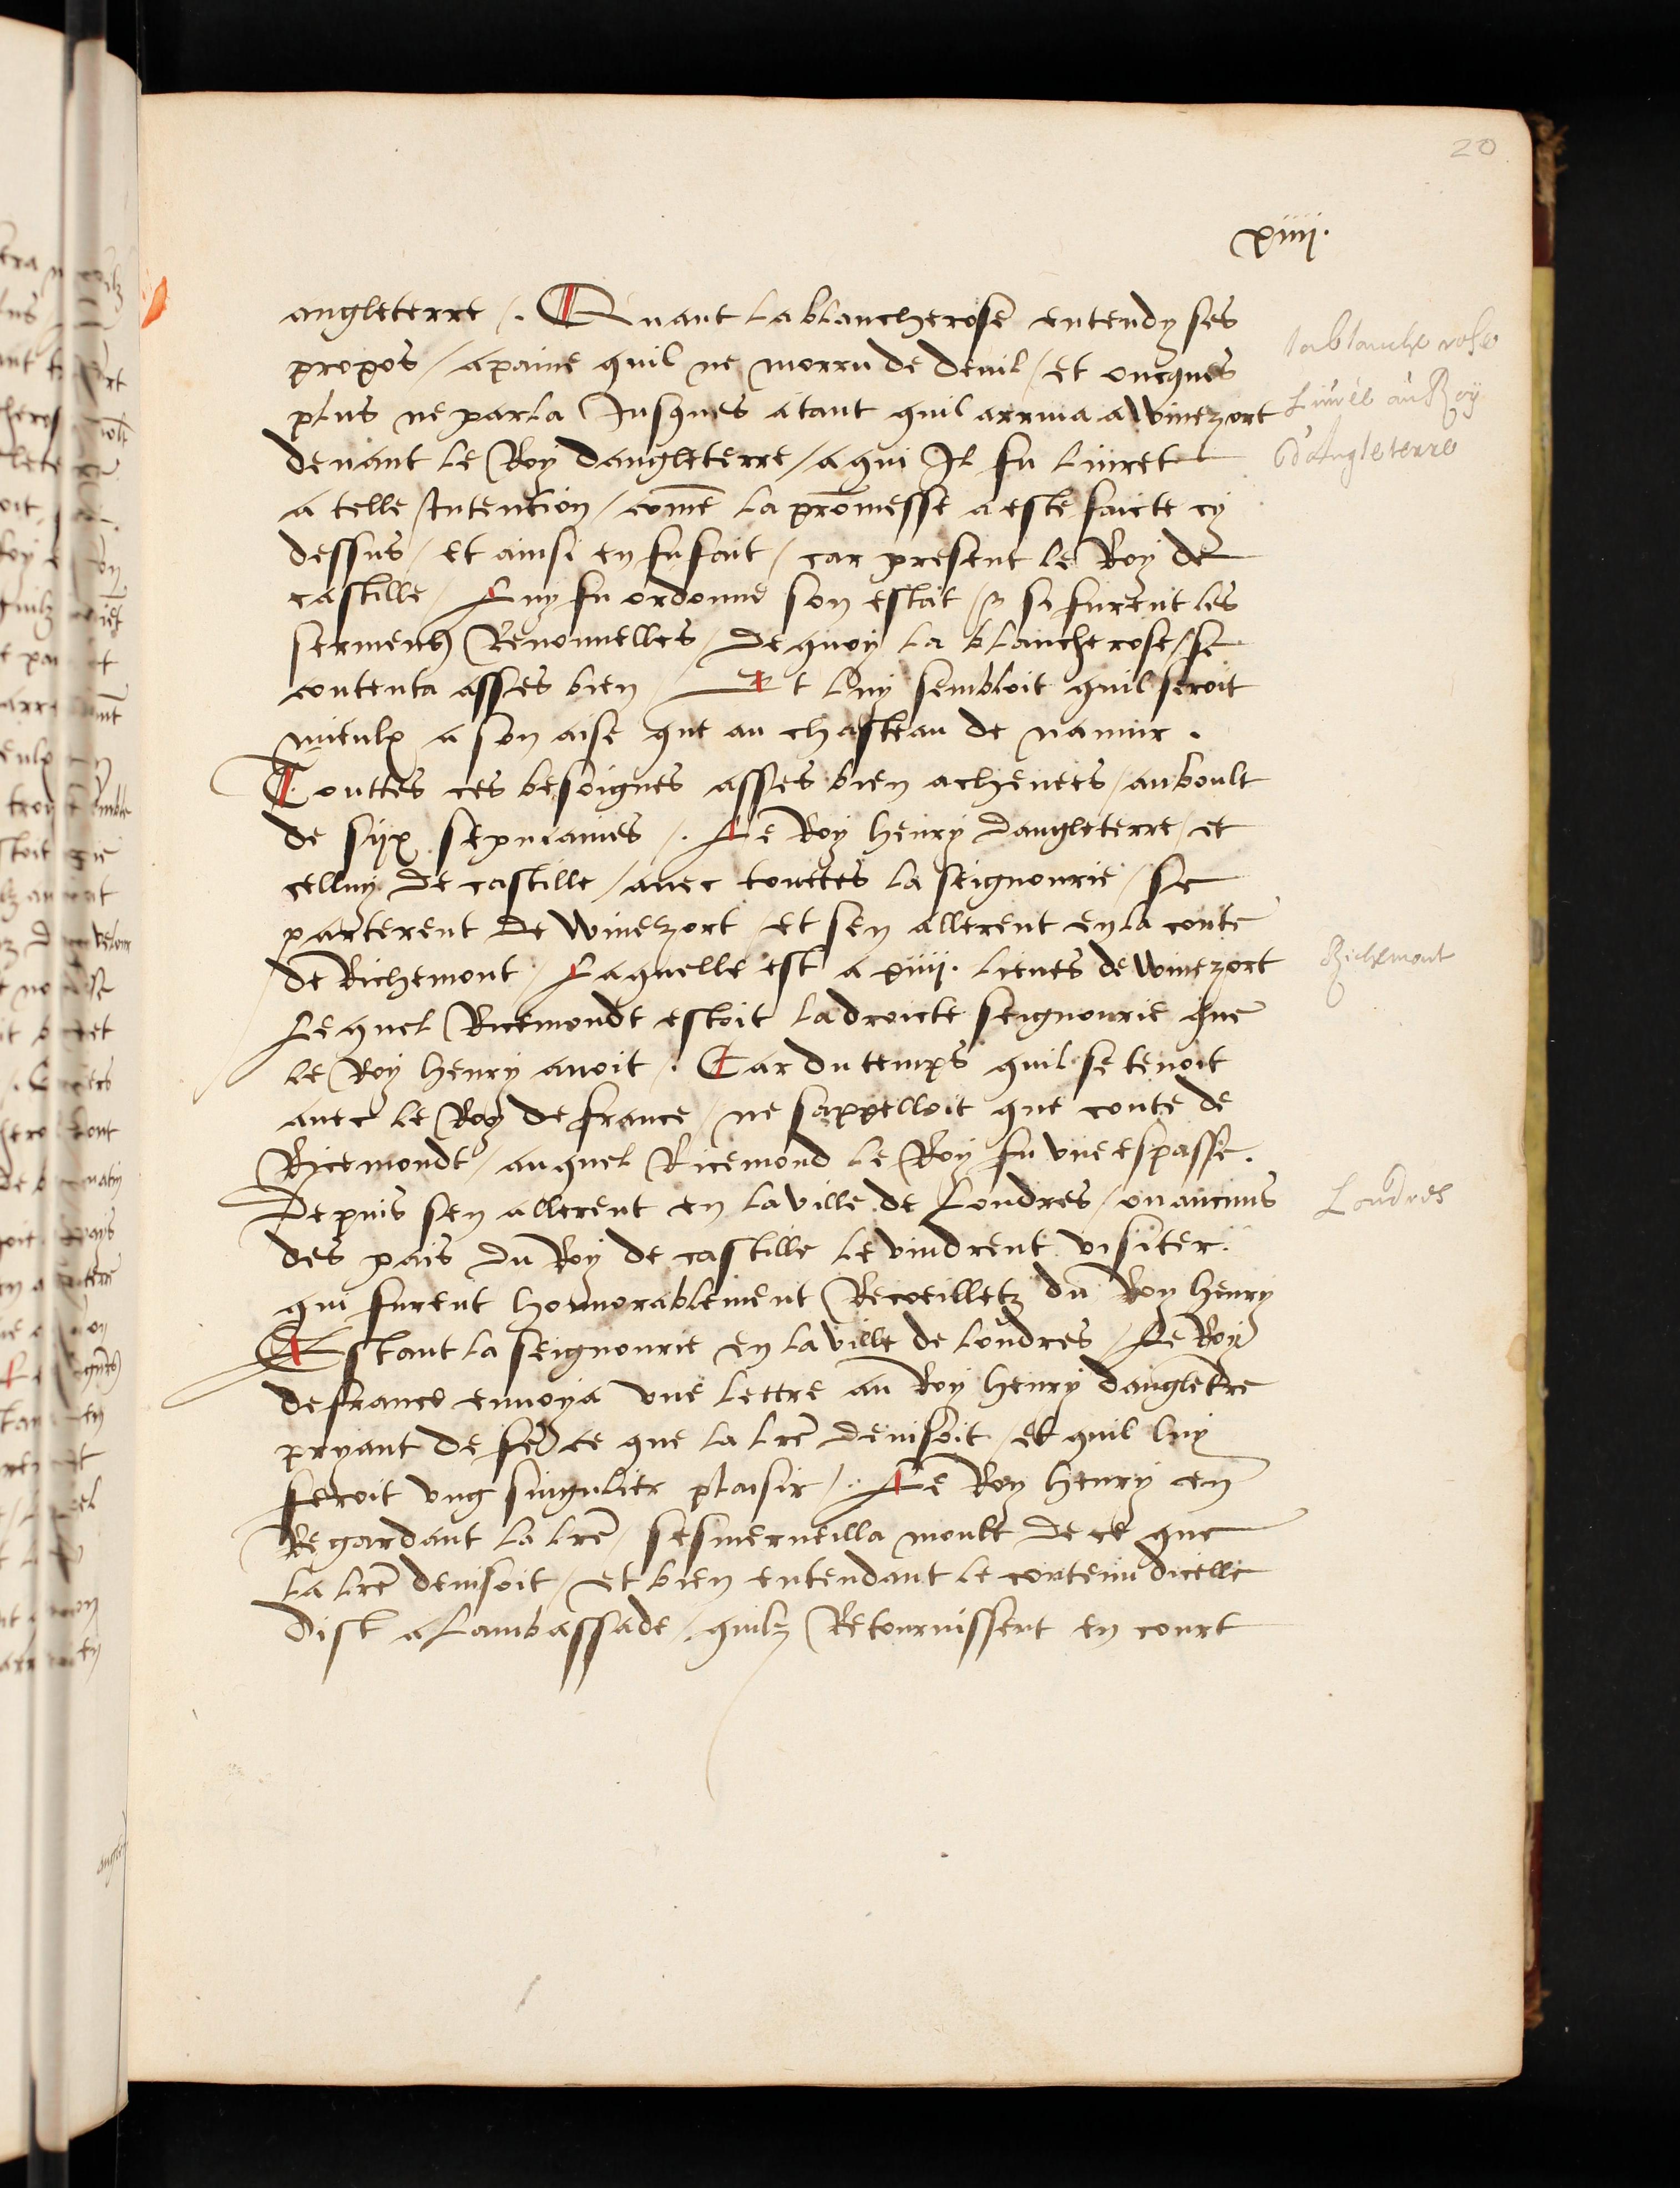 20
xiiij.
angleterre /. Quant la blancherose entendy ses
propos / apaine quil ne morru de deuil / et oncques
plus ne parla Jusques a tant quil arriua a Winezort
deuant le Roy dangleterre / a qui Il fu liuret
a telle Intention / come la promesse a este faicte cy
dessus / et ainsi en fu fait / car present le Roy de
castille / Luy fu ordonne son estat / & si furent les
sermens Renouuelles / De quoy la blancherose / se
contenta asses bien / Et luy sembloit quil seroit
mieulx a son aise que au chasteau de namur .
Touttes ces besoignes asses bien acheuees / au boult
de siix sepmaines /. Le Roy henry dangleterre / et
celluy de castille / auec touttes la seignourie / se
parterent de Winezort / et sen allerent en la conte
de Richemont / Laquelle est a xiiij. lieues de Winezort
Lequel Ricemondt estoit la droicte seignourie que
le Roy henry auoit /. Car du temps quil se tenoit
auec le Roy de france / ne sappelloit que conte de
Ricemondt / auquel Ricemond le Roy fu une espasse .
Depuis sen allerent en la ville de Londres / ou aucuns
des pais du Roy de castille le vindrent visiter .
qui furent honnorablement Recoeilletz du Roy henry
Estant la seignourie en la ville de londres / Le Roy
de france enuoya une lettre au Roy henry dangletre
pryant de fe ce que la lre deuisoit / et quil luy
feroit ung singulier plaisir /. Le Roy henry en
Regardant la lre / sesmerueilla moult de ce que
la lre deuisoit / et bien entendant le contenu dicelle
dist a lambassade / quilz Retournissent en court
la blanche rose
Liuré au Roy
d'Angleterre
Richemont
Londres